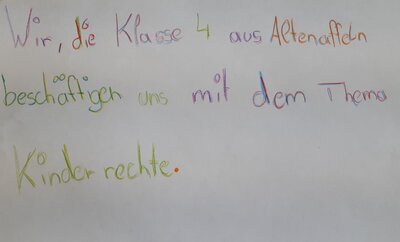 Wir, die Klasse 4 aus Altenaffeln
beschäftigen uns mit dem Thema
Kinderrechte.